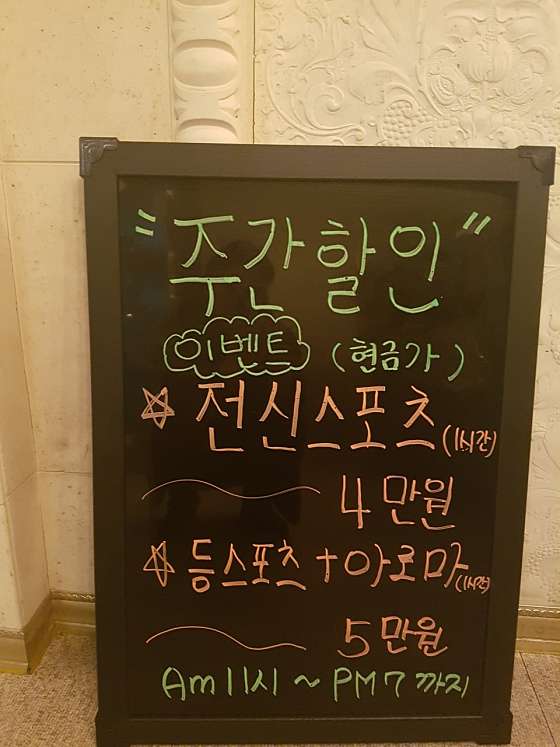 "주간할인"
이벤트 (현금가)
☆ 전신스포츠 (1시간)
4만원
☆ 등스포츠+아로마 (1시간)
5만원
Am11시~PM7까지